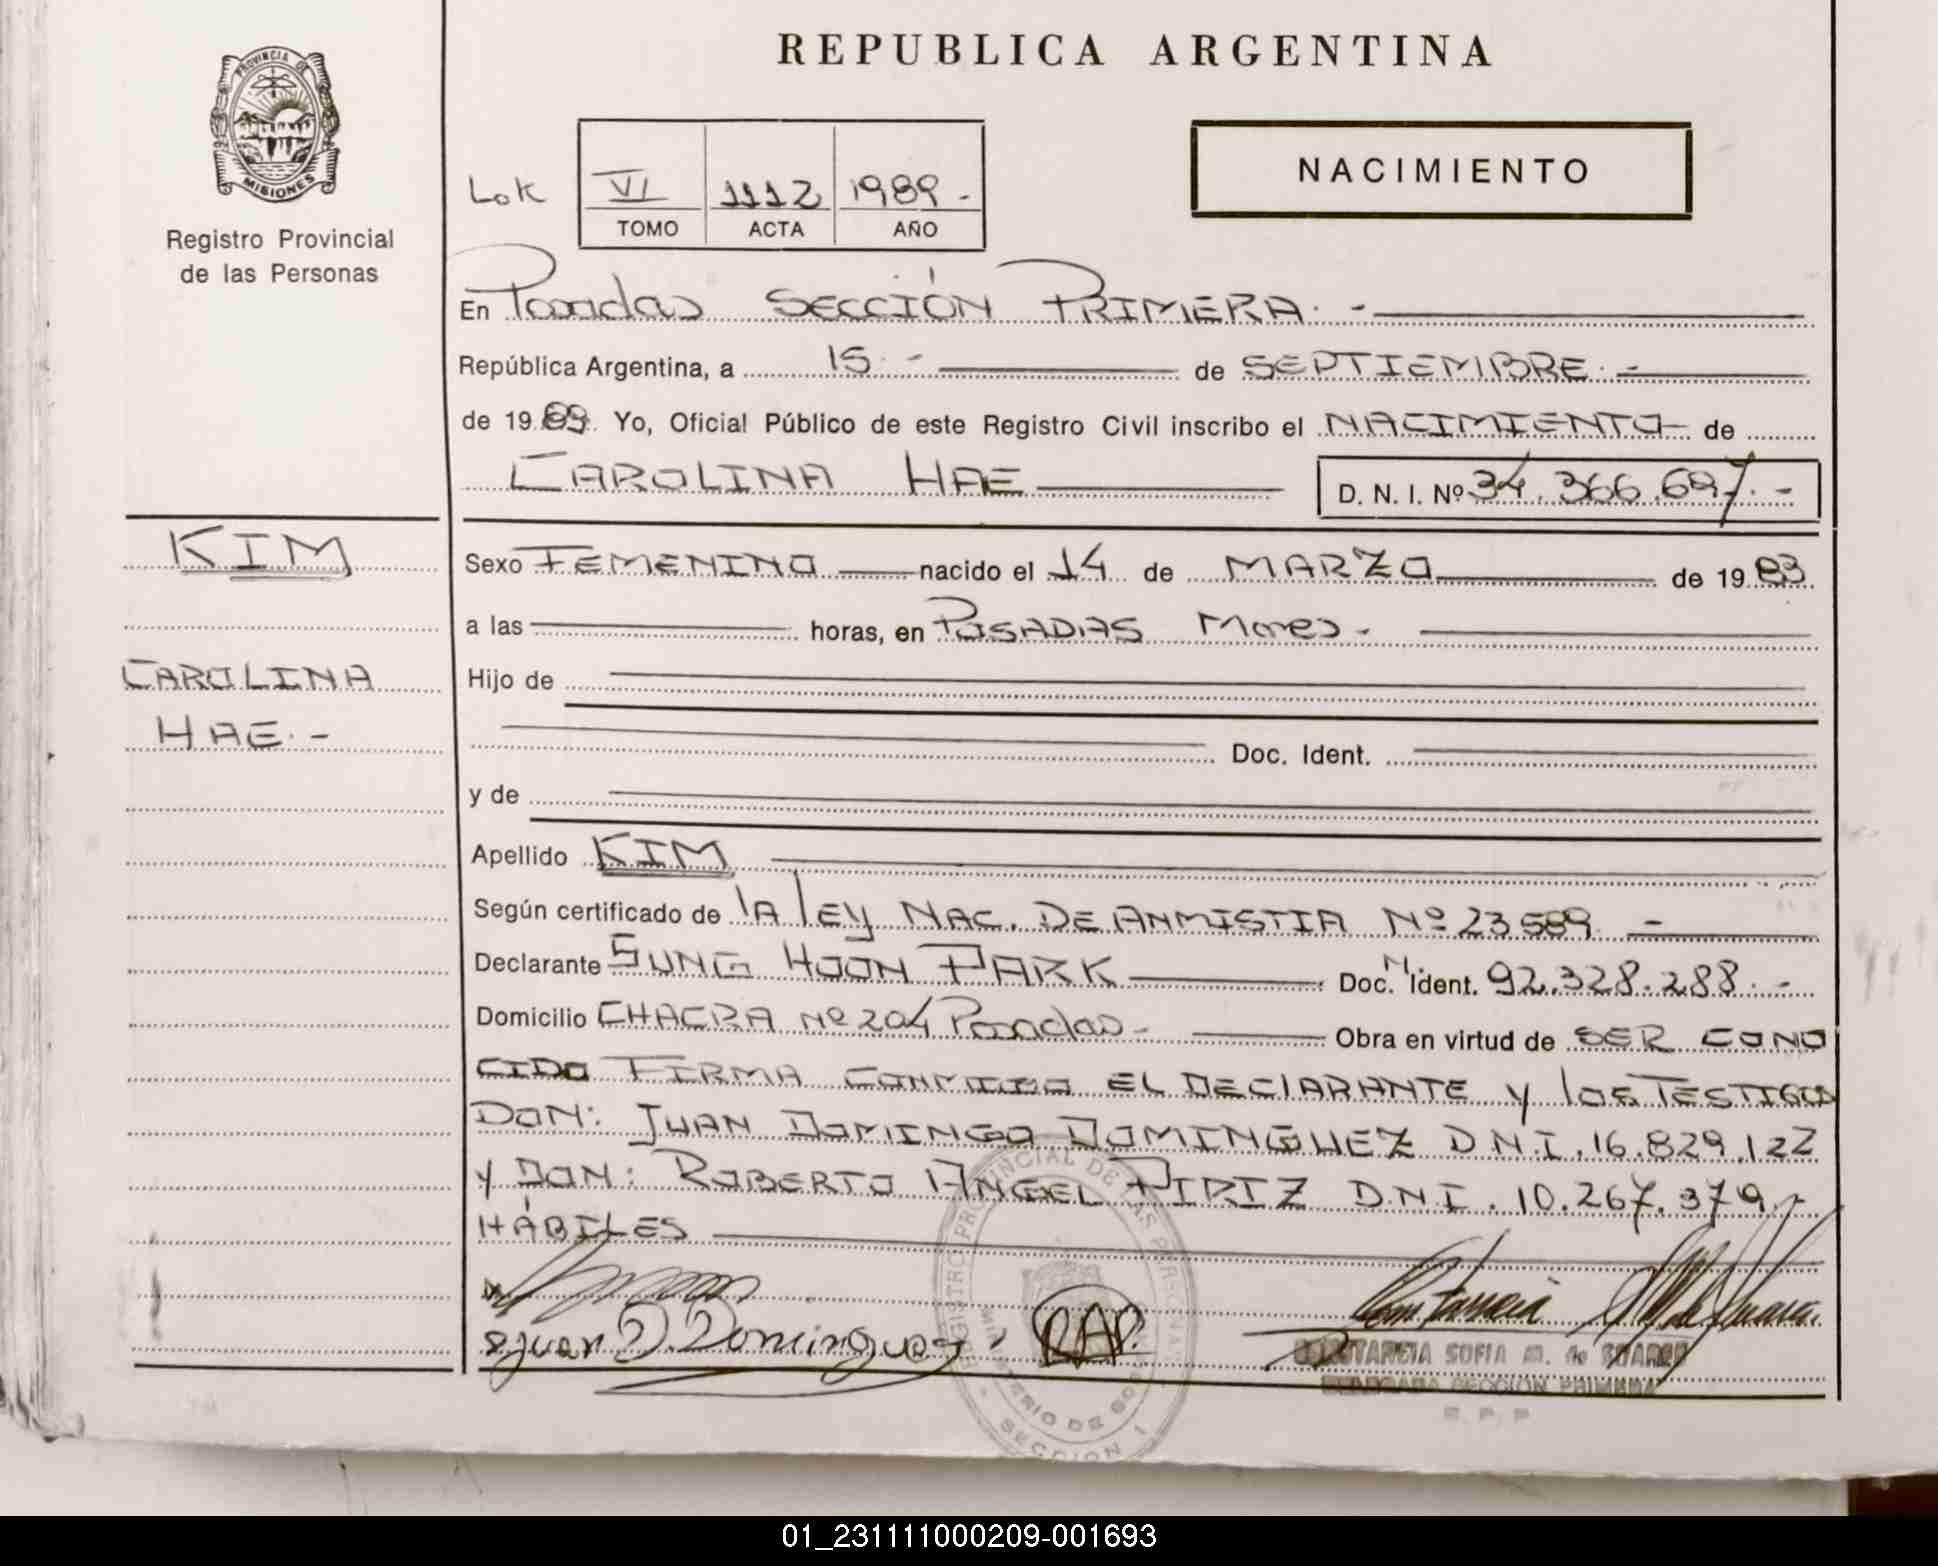 REPUBLICA ARGENTINA
PROVINCIA DE
MISIONES
Registro Provincial
de las Personas
Lok
VI 1112 1989.-
TOMO ACTA AÑO
NACIMIENTO
En Posadas SECCIÓN PRIMERA.-
República Argentina, a 15.- de SEPTIEMBRE.-
de 1989. Yo, Oficial Público de este Registro Civil inscribo el NACIMIENTO de
CAROLINA HAE D. N. I. Nº 34.366.697.-
KIM
CAROLINA
HAE.-
Sexo FEMENINO nacido el 14 de MARZO de 1983
a las horas, en POSADAS Mnes.
Hijo de
Doc. Ident.
y de
Apellido KIM
Según certificado de lA lEy NAC. DE ANMISTIA Nº 23589.-
Declarante SUNG HOON PARK Doc. Ident. 92.328.288.-
Domicilio CHACRA Nº 204 Posadas- Obra en virtud de SER CONO
CIDO FIRMA CONMIGO EL DEClARANTE y los TESTIGOS
DON: JUAN DOMINGO DOMINGUEZ D.N.I. 16.829.122
y DON: ROBERTO ANGEL PIRIZ D.N.I. 10.267.379.-
HÁBILES
Juan D. Dominguez
RAP.
REGISTRO PROVINCIAL DE LAS PERSONAS
MINISTERIO DE GOB
SECCION 1
CONSTANCIA SOFIA M. de SUAREZ
DELEGADA SECCION PRIMERA
R. P. P
01_231111000209-001693